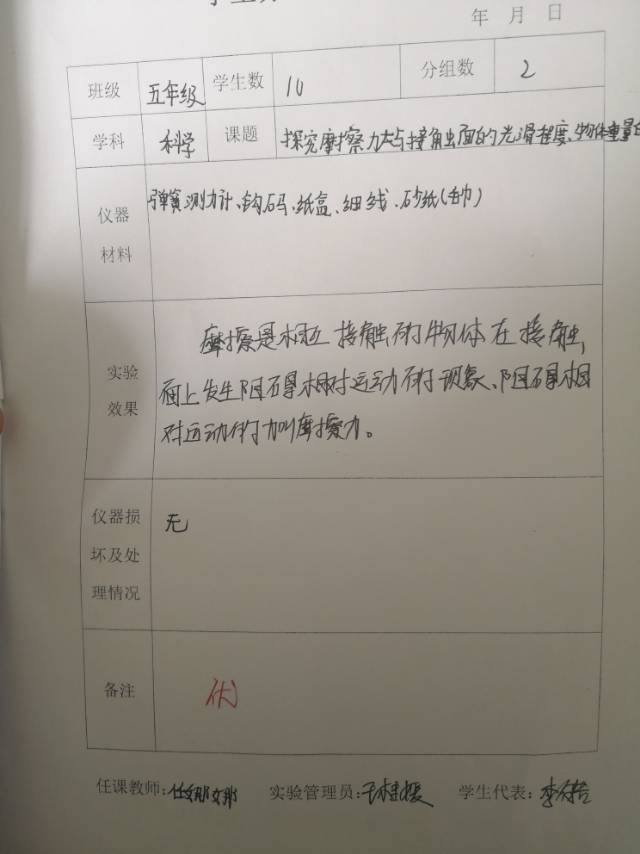 年 月 日
班级 五年级 学生数 10 分组数 2
学科 科学 课题 探究摩擦力大小与接触面的光滑程度、物体重量
仪器材料
弹簧测力计、钩码、纸盒、细线、砂纸(毛巾)
实验效果
摩擦是相互接触的物体在接触
面上发生阻碍相对运动的现象、阻碍相
对运动的力叫摩擦力。
仪器损坏及处理情况
无
备注
优
任课教师: 实验管理员: 学生代表: